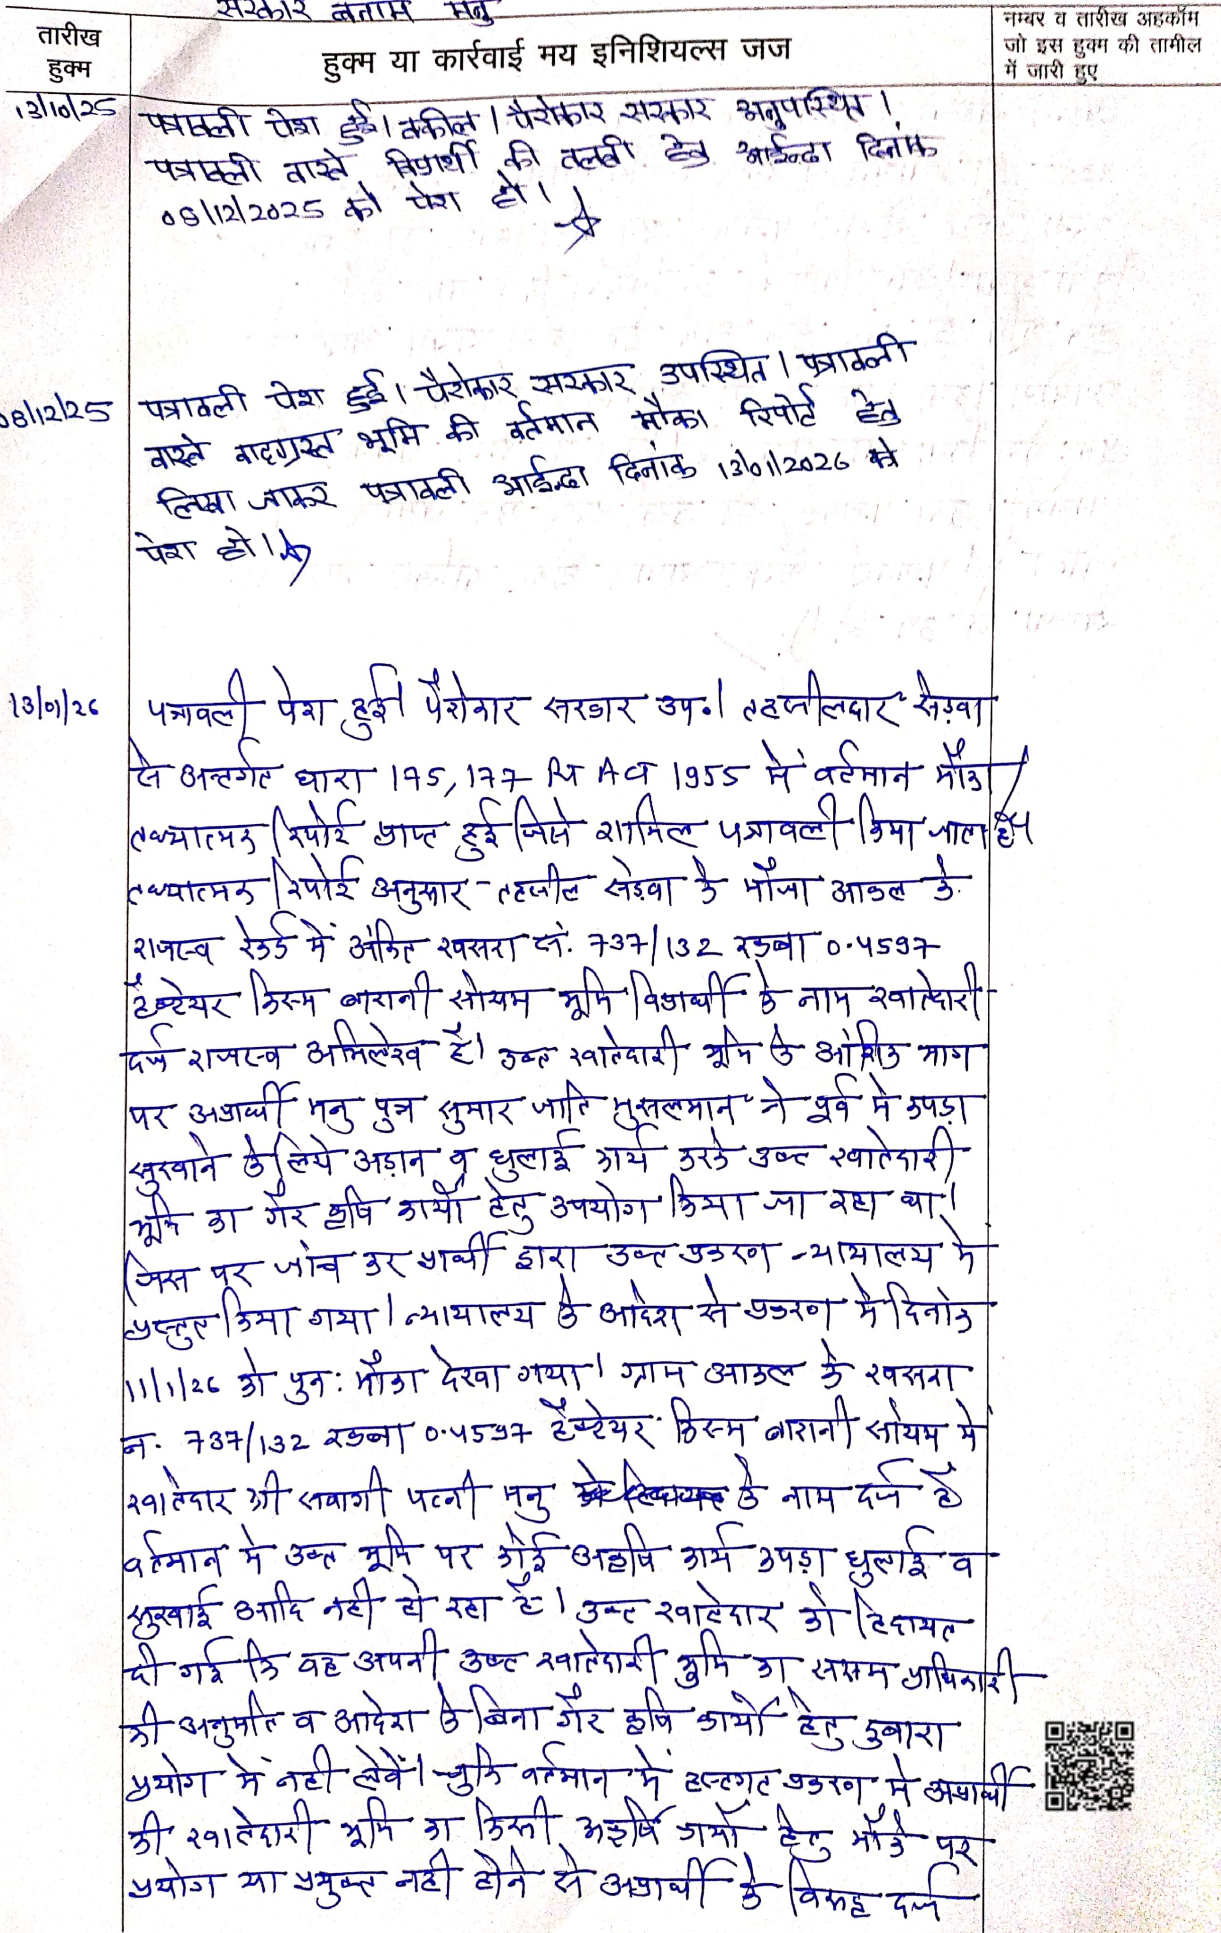 सरकार बनाम मनु
तारीख
हुक्म
हुक्म या कार्रवाई मय इनिशियल्स जज
नम्बर व तारीख अहकॉम
जो इस हुक्म की तामील
में जारी हुए
13/10/25 पत्रावली पेश हुई। वकील / पैरोकार सरकार अनुपस्थित।
पत्रावली वास्ते विप्रार्थी की तलबी हेतु आईन्दा दिनांक
08/12/2025 को पेश हो।
08/12/25 पत्रावली पेश हुई। पैरोकार सरकार उपस्थित। पत्रावली
वास्ते वादग्रस्त भूमि की वर्तमान मौका रिपोर्ट हेतु
लिखा जाकर पत्रावली आईन्दा दिनांक 13/01/2026 को
पेश हो।
13/01/26 पत्रावली पेश हुई। पैरोकार सरकार उप०। तहसीलदार सेड़वा
से अन्तर्गत धारा 175, 177 RT Act 1955 में वर्तमान मौका
तथ्यात्मक रिपोर्ट प्राप्त हुई जिसे शामिल पत्रावली किया जाता है।
तथ्यात्मक रिपोर्ट अनुसार तहसील सेड़वा के मौजा आकल के
राजस्व रेकर्ड में अंकित खसरा नं. 737/132 रकबा 0.4597
हैक्टेयर किस्म बारानी सोयम भूमि विप्रार्थी के नाम खातेदारी
दर्ज राजस्व अभिलेख है। उक्त खातेदारी भूमि के आंशिक भाग
पर अप्रार्थी मनु पुत्र सुमार जाति मुसलमान ने पूर्व मे कपड़ा
सुखाने के लिये अड़ान व धुलाई कार्य करके उक्त खातेदारी
भूमि का गैर कृषि कार्यों हेतु उपयोग किया जा रहा था।
जिस पर जांच कर प्रार्थी द्वारा उक्त प्रकरण न्यायालय मे
प्रस्तुत किया गया। न्यायालय के आदेश से प्रकरण मे दिनांक
11/1/26 को पुन: मौका देखा गया। ग्राम आकल के खसरा
न. 737/132 रकबा 0.4597 हैक्टेयर किस्म बारानी सोयम मे
खातेदार श्री पत्नी मनु के नाम दर्ज है
वर्तमान मे उक्त भूमि पर कोई अकृषि कार्य कपड़ा धुलाई व
सुखाई आदि नही हो रहा है। उक्त खातेदार को हिदायत
दी गई कि वह अपनी उक्त खातेदारी भूमि का सक्षम प्राधिकारी
की अनुमति व आदेश के बिना गैर कृषि कार्यो हेतु दुबारा
प्रयोग मे नही लेवें। चुकि वर्तमान में हस्तगत प्रकरण मे अप्रार्थी
की खातेदारी भूमि का किसी अकृषि कार्यों हेतु मौके पर
प्रयोग या प्रयुक्त नही होने से अप्रार्थी के विरूद्ध दर्ज